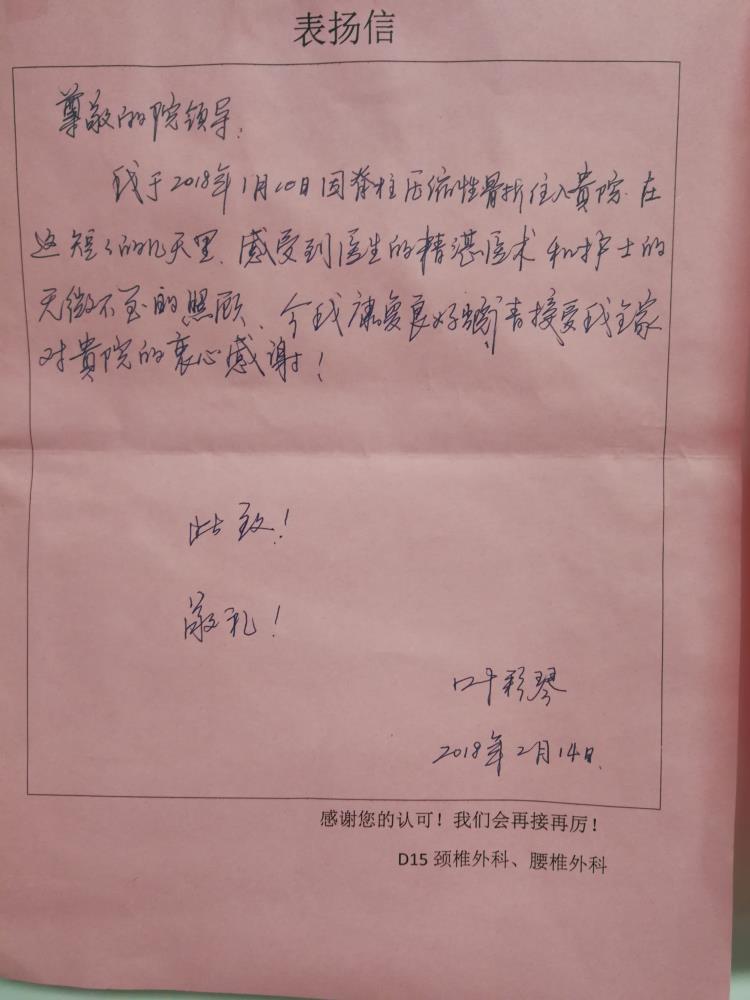 表扬信
尊敬的院领导:
我于2018年1月20日因脊柱压缩性骨折住入貴院.在
这短々的几天里、感受到医生的精湛医术和护士的
无微不至的照顾、今我康复良好 请接受我全家
对貴院的衷心感谢!
此致!
敬礼!
叶彩琴
2018年2月14日.
感谢您的认可!我们会再接再厉!
D15 颈椎外科、腰椎外科